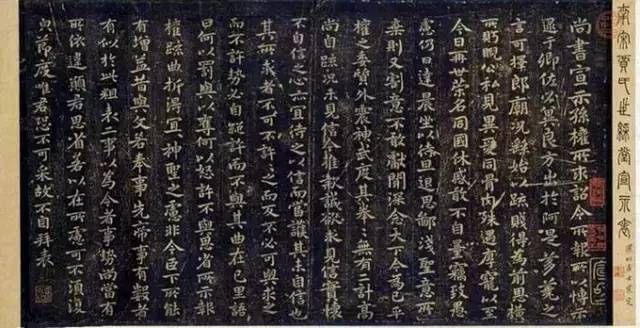 南宋賈氏世綵堂宣示表
尚書宣示孫權所求詔令所報所以博示
逮于卿佐必冀良方出於阿是芻蕘之
言可擇郎廟況繇始以疏賤得為前恩橫
所盼睨公私見異愛同骨肉殊遇厚寵以至
今日再世榮名同國休慼敢不自量竊致愚
慮仍日達晨坐以待旦退思鄙淺聖意所
棄則又割意不敢獻聞深念天下今為已平
權之委質外震神武度其拳〻無有二計高
尚自疏況未見信今推款誠欲求見信實懷
不自信之心亦宜待之以信而當護其未自信也
其所求者不可不許許之而反不必可與求之
而不許勢必自絕許而不與其曲在己里語
曰何以罰與以奪何以怒許不與思省所示報
權疏曲折得宜宜神聖之慮非今臣下所能
有增益昔與文若奉事先帝事有數者
有似於此粗表二事以為今者事勢尚當有
所依違願君思省若以在所慮可不須復
皃節度唯君恐不可采故不自拜表